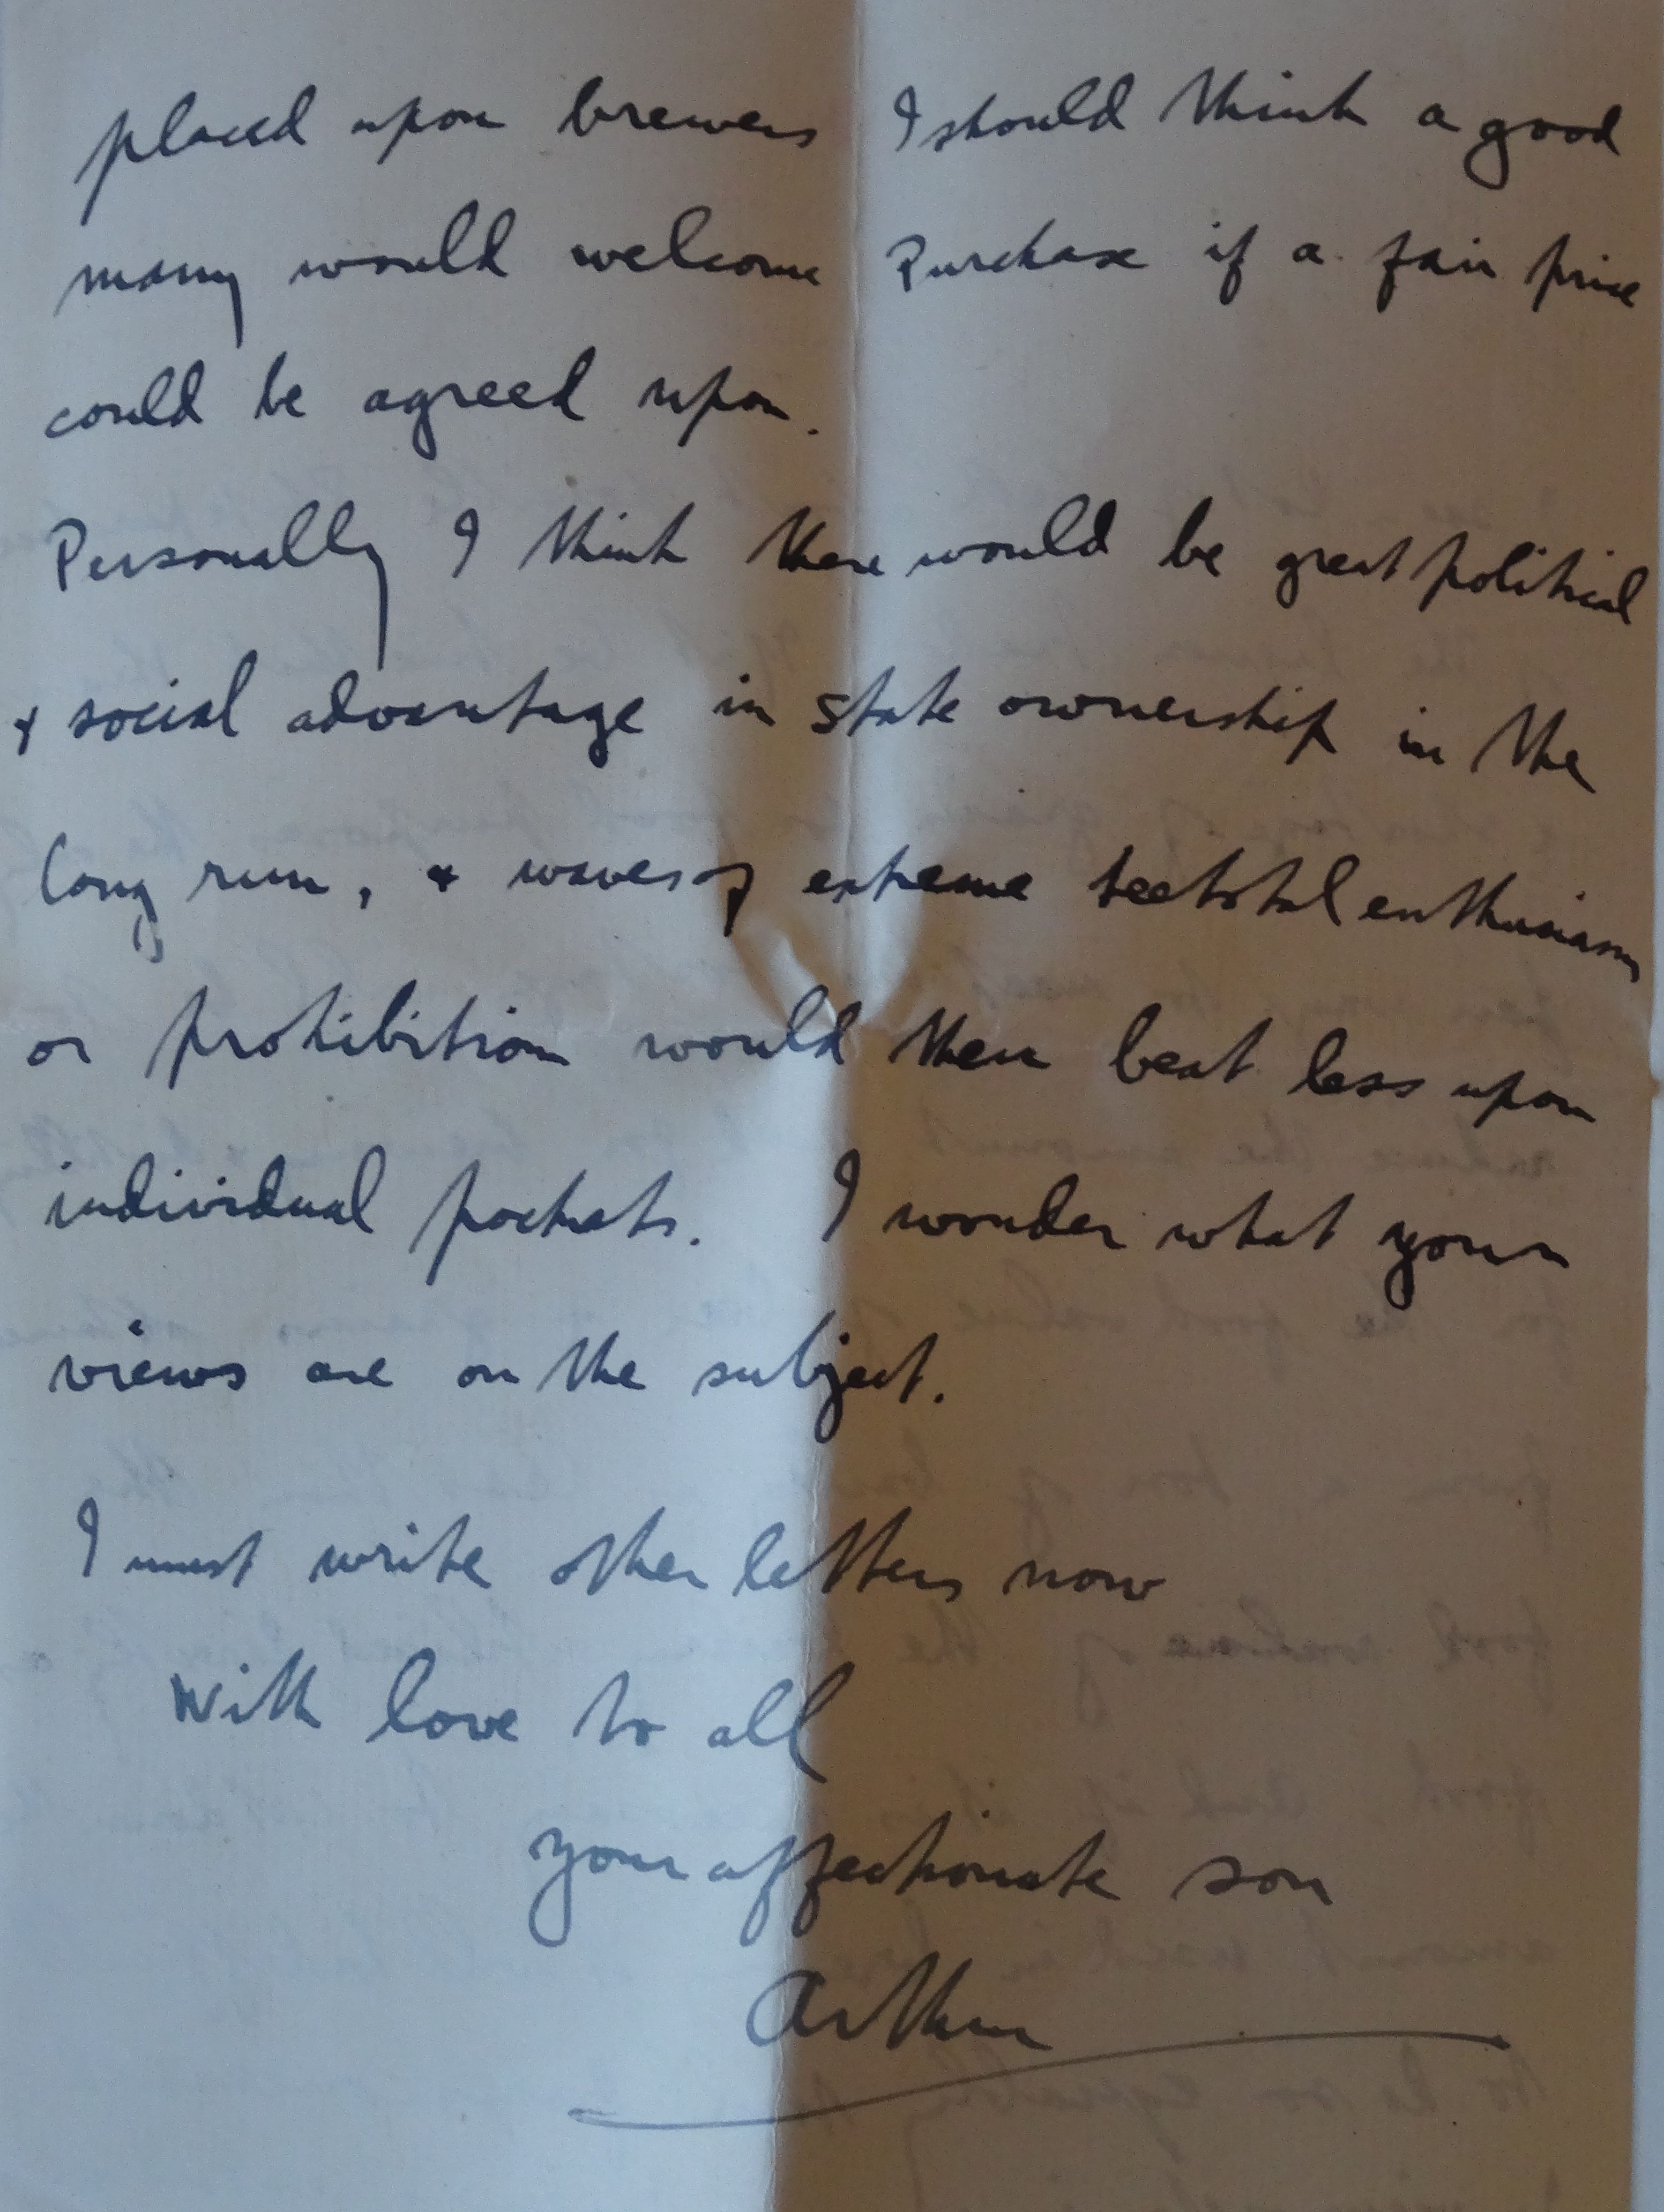 placed upon brewers I should think a good
many would welcome Purchase if a fair price
could be agreed upon.
Personally I think there would be great political
& social advantage in state ownership in the
long run, & waves of extreme teetotal enthusiasm
or prohibition would then beat less upon
individual pockets. I wonder what your
views are on the subject.
I must write other letters now
With love to all
your affectionate son
Arthur